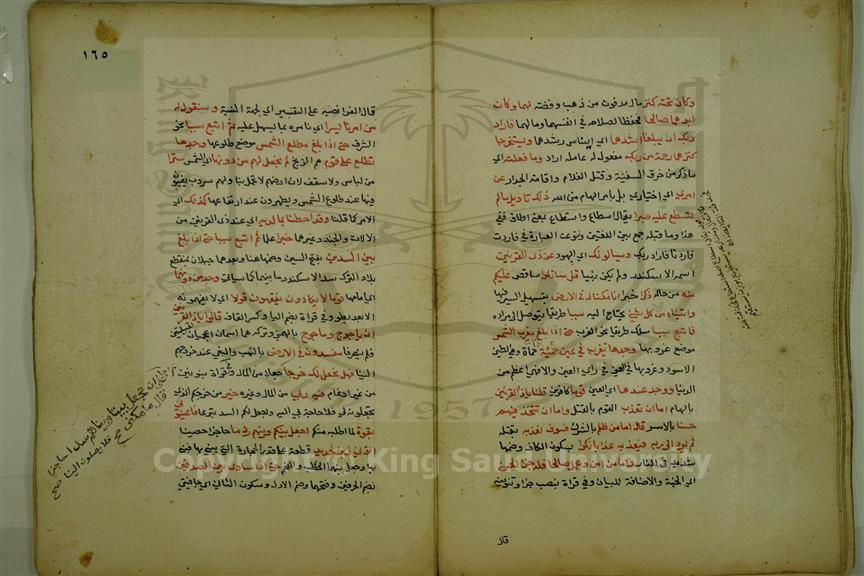 وكان تحته كنز مال مدفون من ذهب وفضة لهما وكان
ابوهما صالحا فحفظا بصلاحه في انفسهما ومالهما فاراد
ربك ان يبلغا اشدهما اي ايناس رشدهما ويستخرجا
كنزهما رحمة من ربك مفعول له عامله اراد وما فعلته اي
ما ذكر من خرق السفينة وقتل الغلام واقامة الجدار عن
امري اي اختياري بل بامر الهام من الله ذلك تاويل ما لم
تسطع عليه صبرا يقال اسطاع واستطاع بمعنى اطاق ففي
هذا وما قبله جمع بين اللغتين ونوعت العبارة في فاردت
فاردنا فاراد ربك ويسالونك اي اليهود عن ذي القرنين
اسمه الاسكندر ولم يكن نبيا قل ساتلو ساقص عليكم
منه من حاله ذكرا خبرا انا مكنا له في الارض بتسهيل السير فيها
واتيناه من كل شيء يحتاج اليه سببا طريقا يوصل الى مراده
فاتبع سببا سلك طريقا نحو الغرب حتى اذا بلغ مغرب الشمس
موضع غروبها وجدها تغرب في عين حمئة ذات حماة وهي الطين
الاسود وغروبها في العين في راي العين والا فهي اعظم من
الدنيا ووجد عندها اي العين قوما كافرين قلنا يا ذا القرنين
بالهام اما ان تعذب القوم بالقتل واما ان تتخذ فيهم
حسنا بالاسر قال اما من ظلم بالشرك فسوف نعذبه نقتله
ثم يرد الى ربه فيعذبه عذابا نكرا بسكون الكاف وضمها
شديدا في النار واما من امن وعمل صالحا فله جزاء الحسنى
اي الجنة والاضافة للبيان وفي قراة بنصب جزا وتنوينه
قال
١٦٥
قال الفرا نصبه على التفسير اي لجهة النسبة وسنقول له
من امرنا يسرا اي نامره بما يسهل عليه ثم اتبع سببا نحو
الشرق حتى اذا بلغ مطلع الشمس موضع طلوعها وجدها
تطلع على قوم هم الزنج لم نجعل لهم من دونها اي الشمس سترا
من لباس ولا سقف لان ارضهم لا تحمل بنا ولهم سروب يغيبون
فيها عند طلوع الشمس ويظهرون عند ارتفاعها كذلك اي
الامر كما قلنا وقد احطنا بما لديه اي عند ذي القرنين من
الالات والجند وغيرهما خبرا علما ثم اتبع سببا حتى اذا بلغ
بين السدين بفتح السين وضمها هنا وبعدهما جبلان بمنقطع
بلاد الترك سد الاسكندر ما بينهما كما سياتي وجد من دونهما
اي امامهما قوما لا يكادون يفقهون قولا اي لا يفهمونه
الا بعد بطو وفي قراة بضم اليا وكسر القاف قالوا يا ذا القرنين
ان ياجوج وماجوج بالهمز وتركه هما اسمان اعجميان لقبيلتين
فلم ينصرفا مفسدون في الارض بالنهب والبغي عند خروجهم
الينا فهل نجعل لك خرجا جعلا من المال وفي قراة خراجا
من غير ادغام فيه ربي من المال وغيره خير من خرجكم الذي
تجعلونه لي فلا حاجة لي اليه واجعل لكم السد تبرعا فاعينوني
بقوة لما اطلبه منكم اجعل بينكم وبينهم ردما حاجزا حصينا
اتوني زبر الحديد قطعه على قدر الحجارة التي يبنى بها فبنى
بها وجعل بينها الحطب والفحم حتى اذا ساوى بين الصدفين
بضم الحرفين وفتحهما وضم الاول وسكون الثاني اي جانبي
على ان تجعل بيننا وبينهم سدا حاجزا
فلا يصلون الينا صح
قال ما مكني صح
Copyright © King Saud University
1957